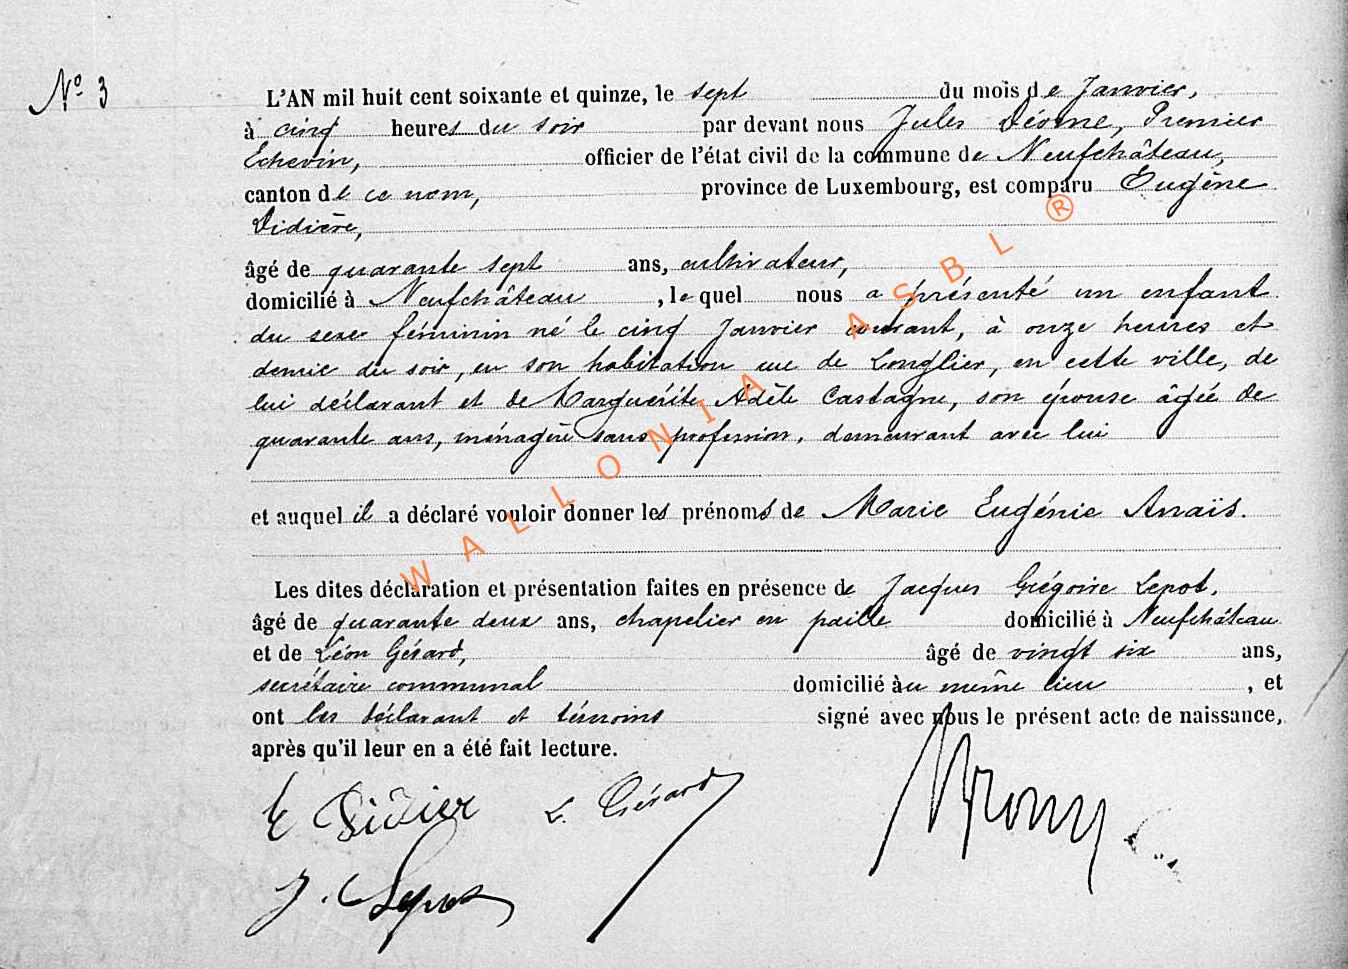 N° 3
L'AN mil huit cent soixante et quinze, le sept du mois de Janvier,
à cinq heures du soir par devant nous Jules Premier
Echevin, officier de l'état civil de la commune de Neufchâteau,
canton de ce nom, province de Luxembourg, est comparu Eugène
Didière,
âgé de quarante sept ans, cultivateur,
domicilié à Neufchâteau, lequel nous a présenté un enfant
du sexe féminin né le cinq Janvier courant, à onze heures et
demie du soir, en son habitation rue de Longlier, en cette ville, de
lui déclarant et de Marguérite Adèle Castagne, son épouse âgée de
quarante ans, ménagère sans profession, demeurant avec lui
et auquel il a déclaré vouloir donner les prénoms de Marie Eugénie Anaïs.
Les dites déclaration et présentation faites en présence de Jacques Grégoire Lepot,
âgé de quarante deux ans, chapelier en paille domicilié à Neufchâteau
et de Léon Gérard, âgé de vingt six ans,
secrétaire communal domicilié au même lieu, et
ont les déclarant et témoins signé avec nous le présent acte de naissance,
après qu'il leur en a été fait lecture.
E Didier L. Gérard
J. G Lepot
WALLONIA ASBL ®